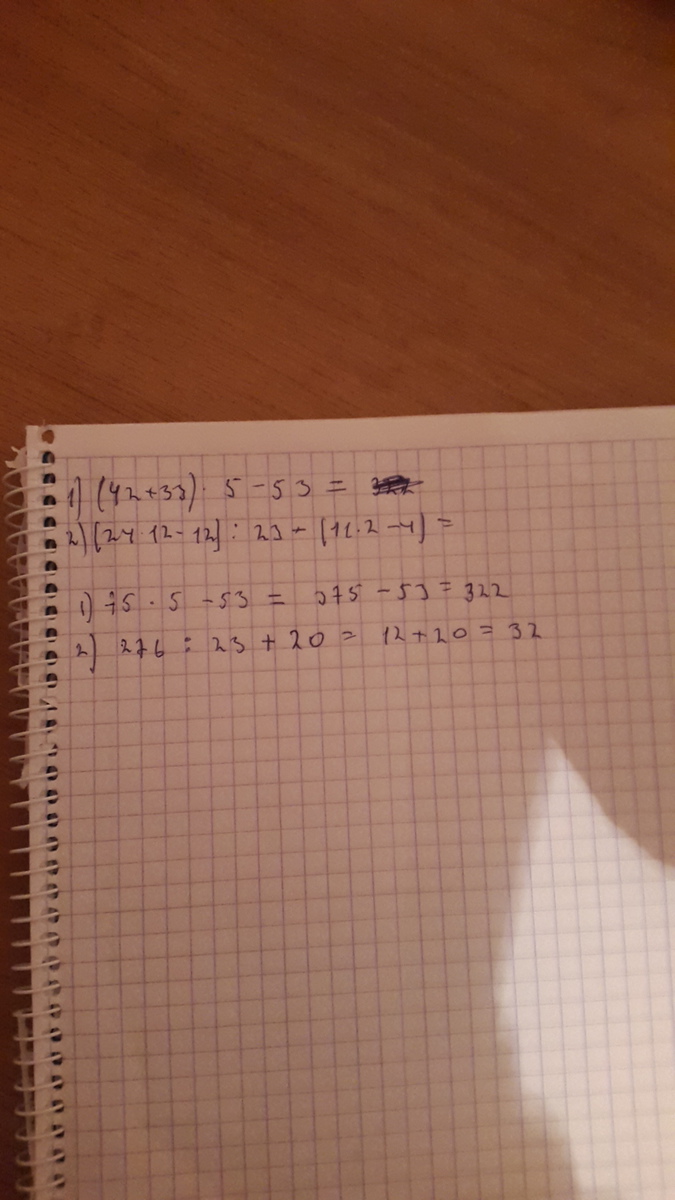 1) (42+33) · 5 - 53 =
2) [24 · 12 - 12] : 23 + [12 · 2 - 4] =
1) 75 · 5 - 53 = 375 - 53 = 322
2) 276 : 23 + 20 = 12 + 20 = 32